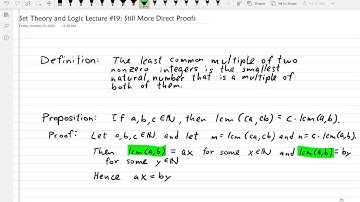 Set Theory and Logic Lecture #19: Still More Direct Proofs
Friday, October 23, 2020
Definition: The least common multiple of two
nonzero integers is the smallest
natural number that is a multiple of
both of them.
Proposition: If a,b,c∈ℕ, then lcm(ca,cb) = c·lcm(a,b).
Proof: Let a,b,c∈ℕ and let m=lcm(ca,cb) and n=c·lcm(a,b).
Then lcm(a,b) = ax for some x∈ℕ and lcm(a,b)=by
for some y∈ℕ
Hence ax=by